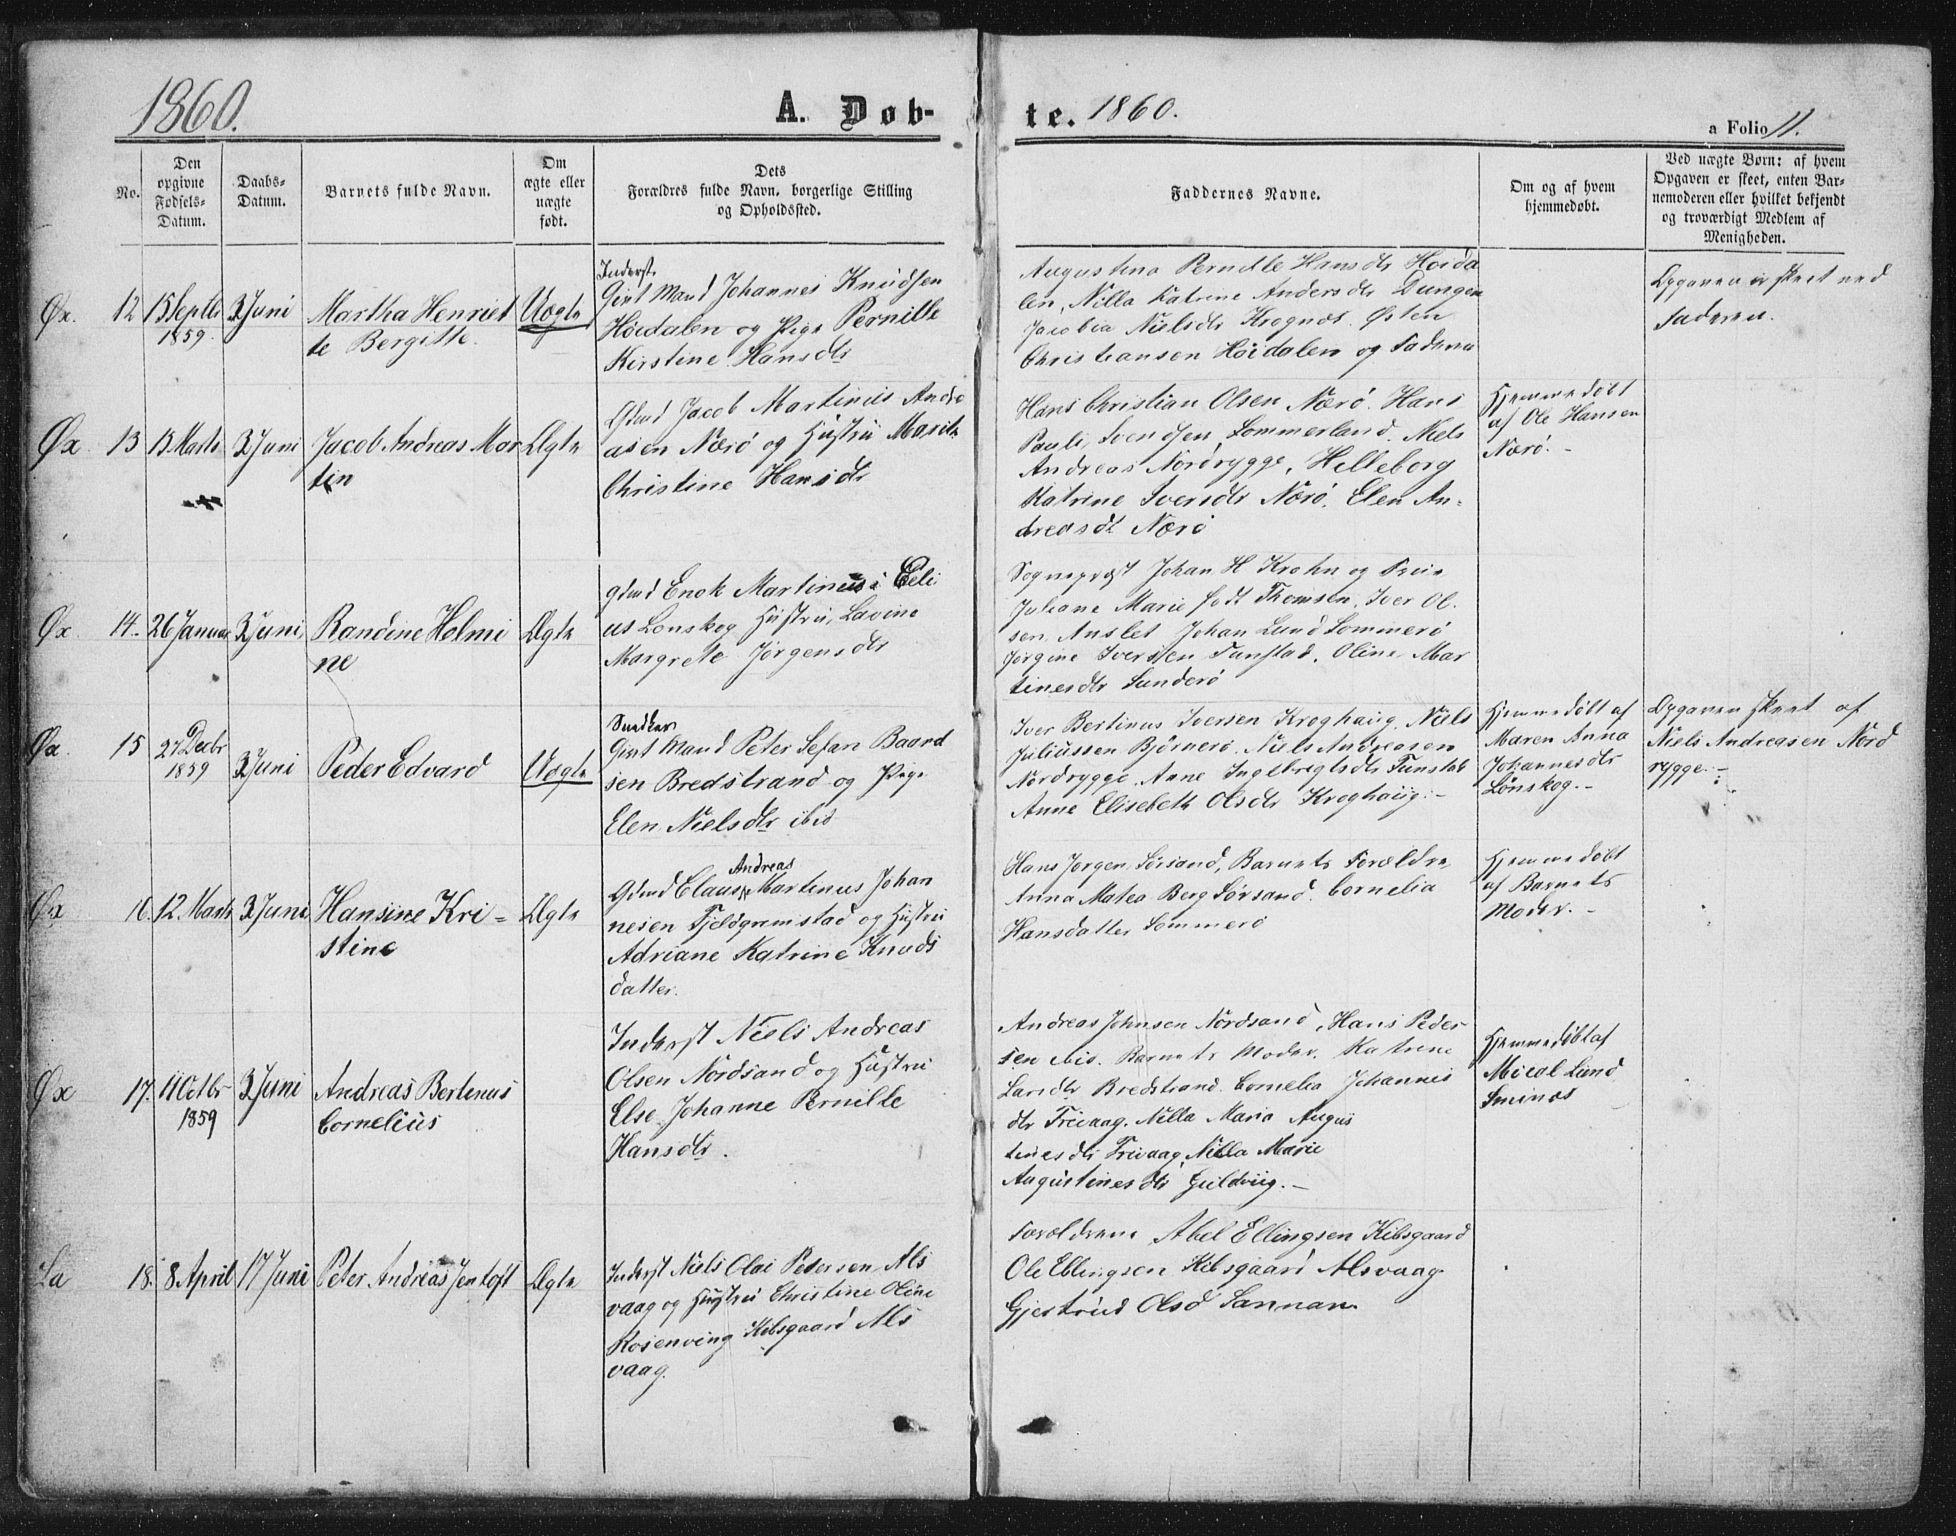 1860.
A. Døb-
te. 1860.
a Folio 11.
No.
Den
opgivne
Fødsels-
Datum.
Daabs-
Datum.
Barnets fulde Navn.
Om
ægte eller
uægte
født.
Dets
Forældres fulde Navn, borgerlige Stilling
og Opholdssted.
Faddernes Navne.
Om og af hvem
hjemmedøbt.
Ved uægte Børn: af hvem
Opgaven er skeet, enten Bar-
nemoderen eller hvilket bekjendt
og troværdigt Medlem af
Menigheden.
Øx. 12 15 Septbr
1859
3 Juni
Martha Henriet
te Bergitte.
Uægte
Inderst
Gift Mand Johannes Knudsen
Høidalen og Pige Pernille
Kirstine Hansdtr
Augustina Pernille Hansdtr Høida
len, Nilla Katrine Andersdtr Dungen
Jacobia Nielsdtr Krognæs. Østen
Christiansen Høidalen og Faderen
Opgaven er skeet ved
Faderen.
Øx. 13 13 Marts 3 Juni
Jacob Andreas Mar
tin
Ægte
Gdmd Jacob Martinus Andre
asen Nærø og Hustru Marit
Christine Hansdtr
Hans Christian Olsen Nærø. Hans
Pauli Svendsen Sommerland. Niels
Andreas Nordrygge, Helleborg
Katrine Iversdtr Nærø. Elen An-
dreasdt Nærø
Hjemmedøbt
af Ole Hansen
Nærø. -
Øx. 14. 26 Januar 3 Juni
Randine Helmi
ne
Ægte
Gdmd Enok Martinus Eeli
us Lønskog Hustru, Lavine
Margrete Jørgensdtr
Sogneprest Johan H Krohn og Frue
Juliane Marie født Thomsen. Iver Ol-
sen Anslet Johan Lund Sommerø
Jørgine Iversen Tunstad, Oline Mar
tinesdtr Sanderø
Øx. 15 27 Decbr
1859
3 Juni
Peder Edvard
Uægte
Snedker
Gift Mand Peter Sefan Baard
sen Bredstrand og Pige
Elen Nielsdtr ibid
Iver Bertinus Iversen Kroghaug. Niels
Juliussen Bjørnerø. Niels Andreasen
Nordrygge. Anne Ingebregtsdtr Tunstad
Anne Elisebeth Olsdtr Kroghaug. -
Hjemmedøbt af
Maren Anna
Johannesdtr
Lønskog. -
Opgaven skeet af
Niels Andreasen Nord
rygge. -
Øx 16 12 Marts 3 Juni
Hansine Kri-
stine
Ægte
Andreas
Gdmd Claus Martinus Johan
nesen Fjeldgrimstad og Hustru
Adriane Katrine Knuds
datter.
Hans Jørgen Sørsand, Barnets Forældre,
Anna Matea Berg Sørsand. Cornelia
Hansdatter Sommerø
Hjemmedøbt
af Barnets
Moder. -
Øx 17. 11 Octbr
1859
3 Juni
Andreas Bertinus
Cornelius
Inderst Niels Andreas
Olsen Nordsand og Hustru
Else Johanne Pernille
Hansdtr.
Andreas Johnsen Nordsand, Hans Peder-
sen ibid. Barnets Moder. Katrine
Larsdtr Bredstrand. Cornelia Johannes
dtr Freivaag. Nilla Maria Augus
tinesdtr Freivaag, Nilla Marie
Augustinesdtr Guldviig. -
Hjemmedøbt af
Mical Lund
Sminæs
La 18. 8 April 17 Juni
Peter Andreas Jentoft
Ægte
Inderst Niels Olai Pedersen Als
vaag og Hustru Christine Oline
Rosenving Kibsgaard Als
vaag.
Forældrene Abel Ellingsen Kibsgaard
Ole Ellingsen Kibsgaard Alsvaag
Gjestrud Olsd Sannan